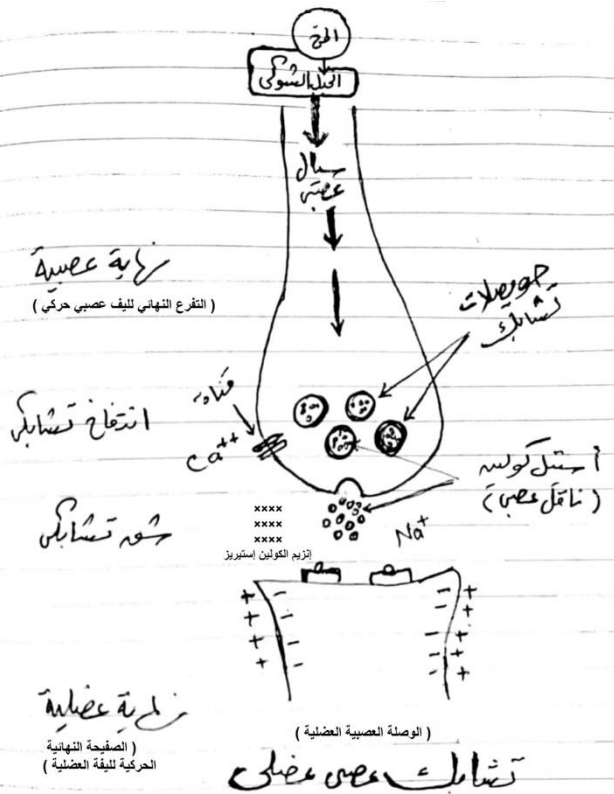 المخ
الحبل الشوكى
سيال
عصبى
نهاية عصبية
( التفرع النهائي لليف عصبي حركي )
حويصلات
تشابك
قناة
Ca++
انتفاخ تشابكى
أستيل كولين
( ناقل عصبى )
شق تشابكى
××××
××××
××××
إنزيم الكولين إستيريز
Na+
+ - - +
+ - - +
+ - - +
+ - - +
نهاية عضلية
( الصفيحة النهائية
الحركية لليفة العضلية )
( الوصلة العصبية العضلية )
تشابك عصبى عضلى